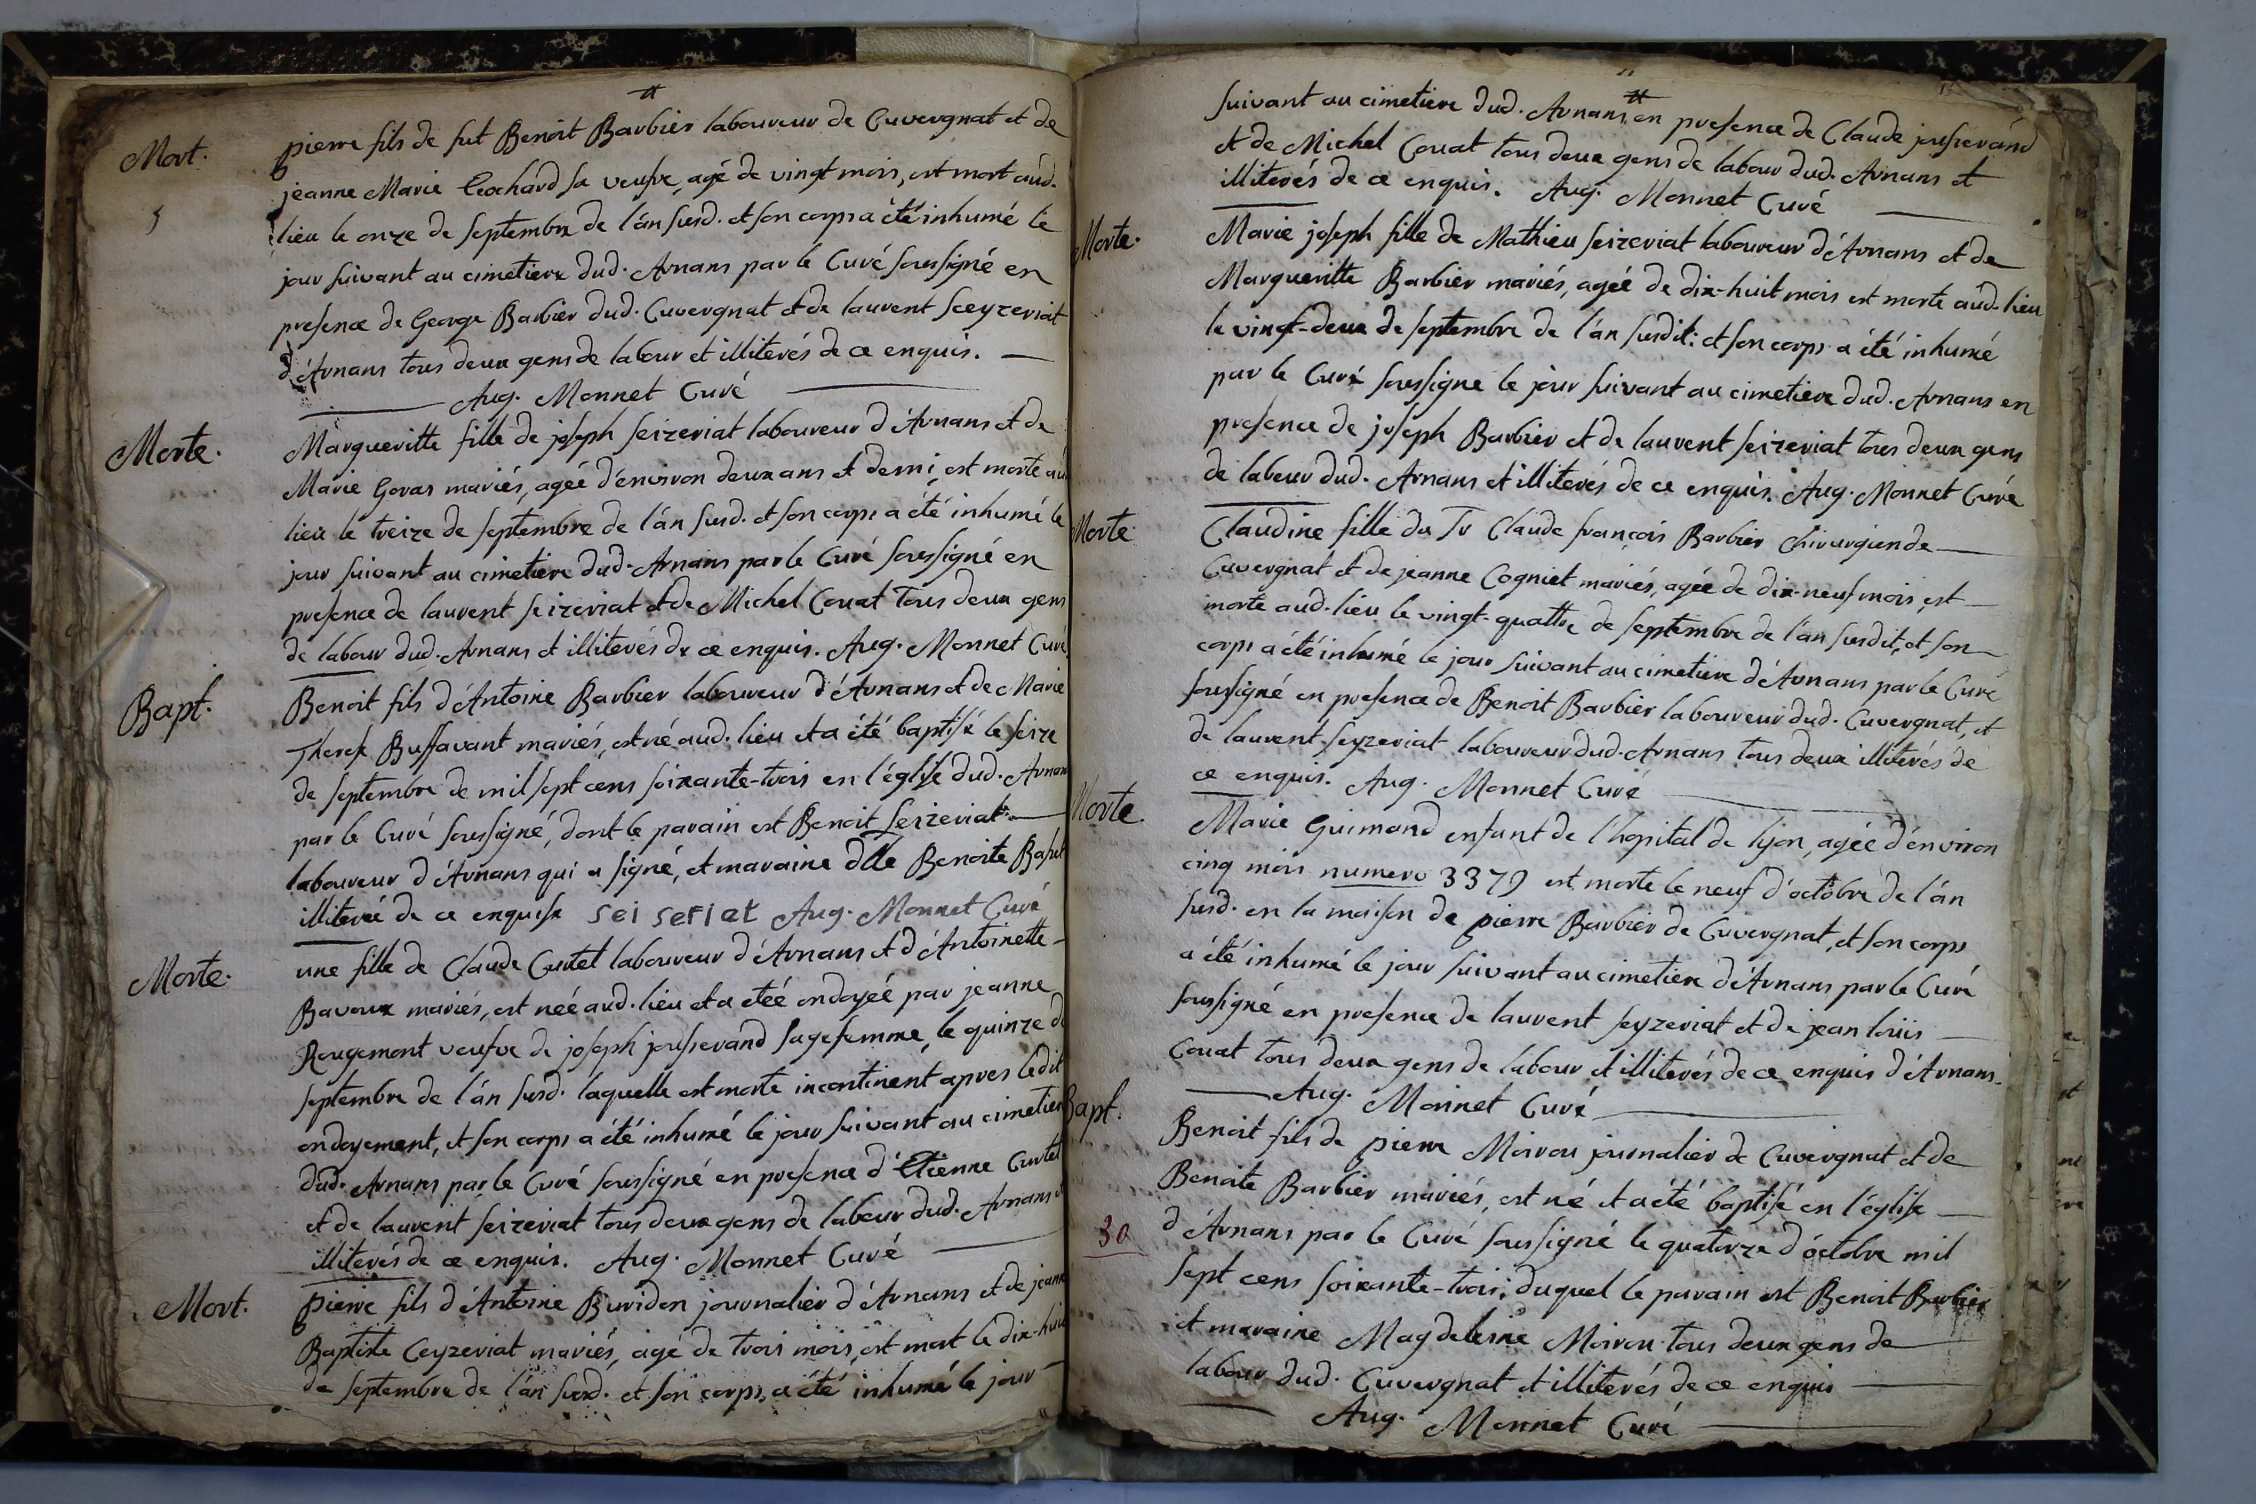 Mort.
pierre fils de fut Benoit Barbier laboureur de Cuvergnat et de
jeanne Marie Cochard sa veufve, agé de vingt mois, est mort aud.
lieu le onze de septembre de l'án susd. et son corps a été inhumé le
jour suivant au cimetiere dud. Arnans par le Curé soussigné en
presence de George Barbier dud. Cuvergnat et de laurent Sceyzeriat
d'Arnans tous deux gens de labour et illiterés de ce enquis.
Aug. Monnet Curé
Morte.
Margueritte fille de joseph seizeriat laboureur d'Arnans et de
Marie Goras mariés, agéé d'énviron deux ans et demi, est morte au
lieu le treize de septembre de l'án susd. et son corps a été inhumé le
jour suivant au cimetiere dud. Arnans par le Curé soussigné en
presence de laurent seizeriat et de Michel Couat tous deux gens
de labour dud. Arnans et illiterés de ce enquis. Aug. Monnet Curé
Bapt.
Benoit fils d'Antoine Barbier laboureur d'Arnans et de Marie
Therese Buffavant mariés, est né aud. lieu et a été baptisé le seize
de septembre de mil sept cens soixante-trois en l'église dud. Arnans
par le Curé soussigné, dont le parain est Benoit Seizeriat
laboureur d'Arnans qui a signé, et maraine dlle Benoite
illiteréé de ce enquise sei seriat Aug. Monnet Curé
Morte.
une fille de Claude Curtet laboureur d'Arnans et d'Antoinette
Bavoux mariés, est néé aud. lieu et a étéé ondoyéé par jeanne
Rougemont veufve de joseph jousserand sagefemme, le quinze de
septembre de l'án susd. laquelle est morte incontinent apres ledit
ondoyement, et son corps a été inhumé le jour suivant au cimetiere
dud. Arnans par le Curé soussigné en presence d'Etienne Curtet
et de laurent seizeriat tous deux gens de labeur dud. Arnans et
illiterés de ce enquis. Aug. Monnet Curé
Mort.
pierre fils d'Antoine Buridon journalier d'Arnans et de jeanne
Baptiste Ceyzeriat mariés, agé de trois mois, est mort le dix-huit
de septembre de l'án susd. et son corps, a été inhumé le jour
suivant au cimetiere dud. Arnans, en presence de Claude jousserand
et de Michel Couat tous deux gens de labour dud. Arnans et
illiterés de ce enquis. Aug. Monnet Curé
Morte.
Marie joseph fille de Mathieu seizeriat laboureur d'Arnans et de
Margueritte Barbier mariés, agéé de dix-huit mois est morte aud. lieu
le vingt-deux de septembre de l'án susdit: et son corps a été inhumé
par le Curé soussigne le jour suivant au cimetiere dud. Arnans en
presence de joseph Barbier et de laurent seizeriat tous deux gens
de labeur dud. Arnans et illiterés de ce enquis. Aug. Monnet Curé
Morte
Claudine fille du Sr Claude françois Barbier Chirurgien de
Cuvergnat et de jeanne Cogniet mariés, agéé de dix-neuf mois, est
morte aud. lieu le vingt-quattre de septembre de l'án susdit, et son
corps a été inhumé le jour suivant au cimetiere d'Arnans par le Curé
soussigné en presence de Benoit Barbier laboureur dud. Cuvergnat, et
de laurent seyzeriat laboureur dud. Arnans tous deux illiterés de
ce enquis. Aug. Monnet Curé
Morte.
Marie Guimond enfant de l'hopital de lyon, agéé d'énviron
cinq mois numero 3379 est morte le neuf d'octobre de l'án
susd. en la maison de pierre Barbier de Cuvergnat, et son corps
a été inhumé le jour suivant au cimetiere d'Arnans par le Curé
soussigné en presence de laurent seyzeriat et de jean louis
Couat tous deux gens de labour et illiterés de ce enquis d'Arnans.
Aug. Monnet Curé
Bapt.
Benoit fils de pierre Moirou journalier de Cuvergnat et de
Benoite Barbier mariés, est né et a été baptisé en l'église
30
d'Arnans par le Curé soussigné le quatorze d'óctobre mil
sept cens soixante-trois; duquel le parain est Benoit Barbier
et maraine Magdeleine Moirou tous deux gens de
labour dud. Cuvergnat et illiterés de ce enquis
Aug. Monnet Curé